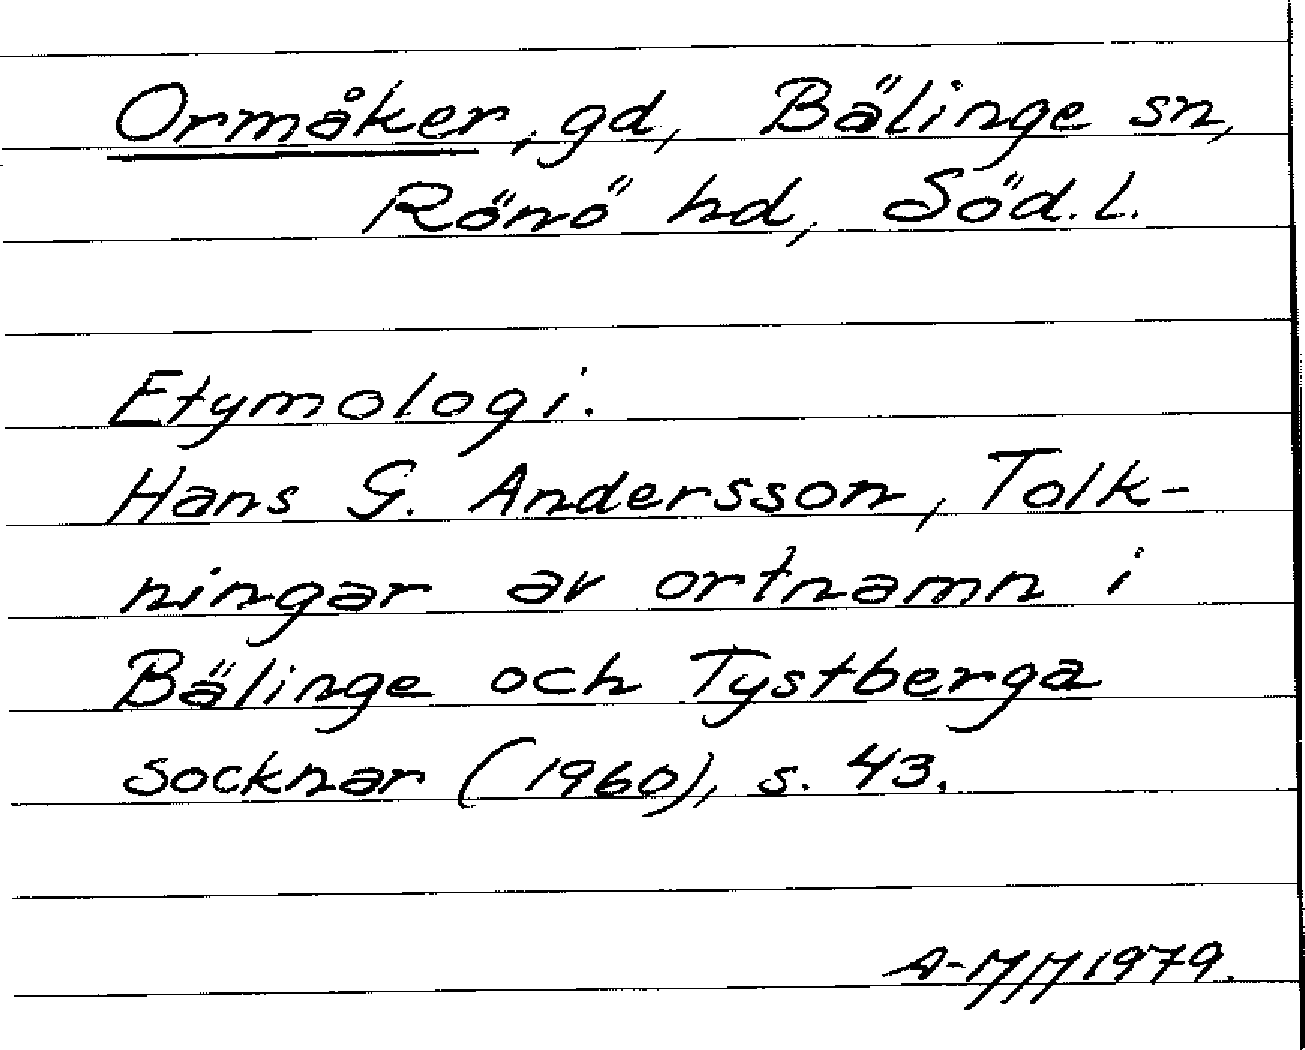 Ormåker, gd, Bälinge sn,
Rönö hd, Söd. l.
Etymologi.
Hans G. Andersson, Tolk-
ningar av ortnamn i
Bälinge och Tystberga
socknar (1960), s. 43.
1979.